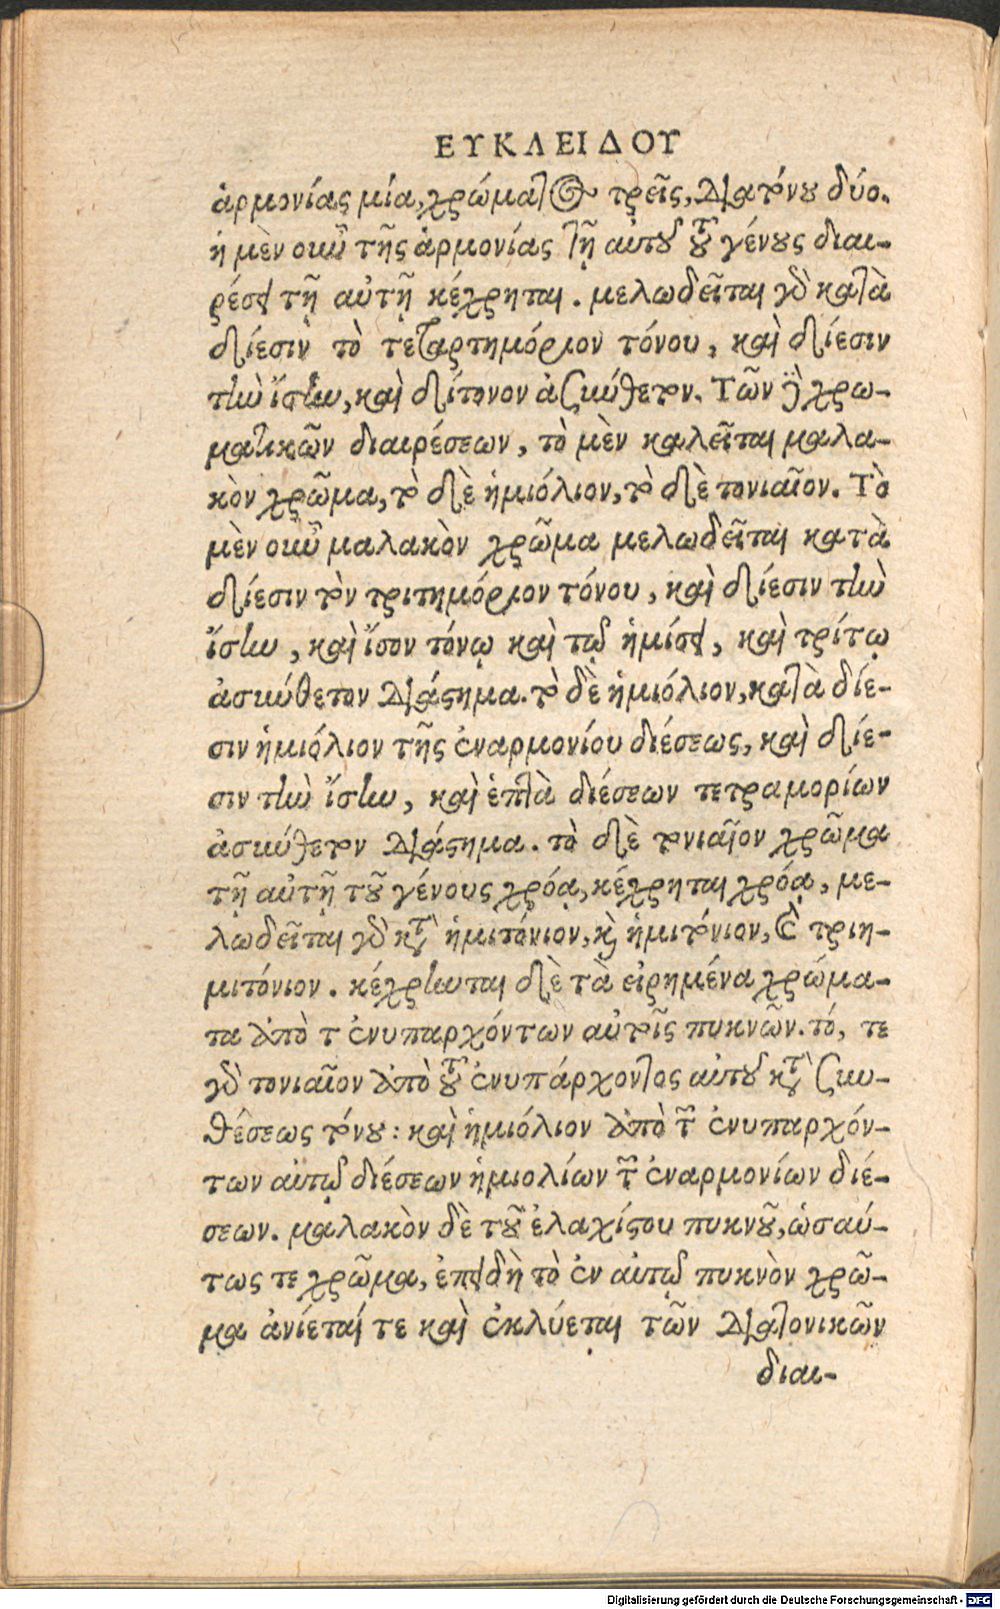 ΕΥΚΛΕΙΔΟΥ
ἁρμονίας μία, χρώματος τρεῖς, διατόνου δύο.
ἡ μὲν οὖν τῆς ἁρμονίας τῇ αὐτοῦ τοῦ γένους διαι-
ρέσει τῇ αὐτῇ κέχρηται. μελωδεῖται γὰρ κατὰ
δίεσιν τὸ τεταρτημόριον τόνου, καὶ δίεσιν
τὴν ἴσην, καὶ δίτονον ἀσύνθετον. Τῶν δὲ χρω-
ματικῶν διαιρέσεων, τὸ μὲν καλεῖται μαλα-
κὸν χρῶμα, τὸ δὲ ἡμιόλιον, τὸ δὲ τονιαῖον. Τὸ
μὲν οὖν μαλακὸν χρῶμα μελωδεῖται κατὰ
δίεσιν τὸν τριτημόριον τόνου, καὶ δίεσιν τὴν
ἴσην, καὶ ἴσον τόνῳ καὶ τῷ ἡμίσει, καὶ τρίτῳ
ἀσύνθετον διάστημα. τὸ δὲ ἡμιόλιον, κατὰ δίε-
σιν ἡμιόλιον τῆς ἐναρμονίου διέσεως, καὶ δίε-
σιν τὴν ἴσην, καὶ ἑπτὰ διέσεων τετραμορίων
ἀσύνθετον διάστημα. τὸ δὲ τονιαῖον χρῶμα
τῇ αὐτῇ τοῦ γένους χρόᾳ, κέχρηται χρόᾳ, με-
λωδεῖται γὰρ κατὰ ἡμιτόνιον, καὶ ἡμιτόνιον, καὶ τριη-
μιτόνιον. κέχρηνται δὲ τὰ εἰρημένα χρώμα-
τα ἀπὸ τῶν ἐνυπαρχόντων αὐτοῖς πυκνῶν. τό, τε
γὰρ τονιαῖον ἀπὸ τοῦ ἐνυπάρχοντος αὐτοῦ κατὰ συν-
θέσεως τόνου: καὶ ἡμιόλιον ἀπὸ τῶν ἐνυπαρχόν-
των αὐτῷ διέσεων ἡμιολίων τῶν ἐναρμονίων διέ-
σεων. μαλακὸν δὲ τοῦ ἐλαχίστου πυκνοῦ, ὡσαύ-
τως τε χρῶμα, ἐπειδὴ τὸ ἐν αὐτῷ πυκνὸν χρῶ-
μα ἀνίεταί τε καὶ ἐκλύεται τῶν διατονικῶν
διαι-
Digitalisierung gefördert durch die Deutsche Forschungsgemeinschaft - DFG